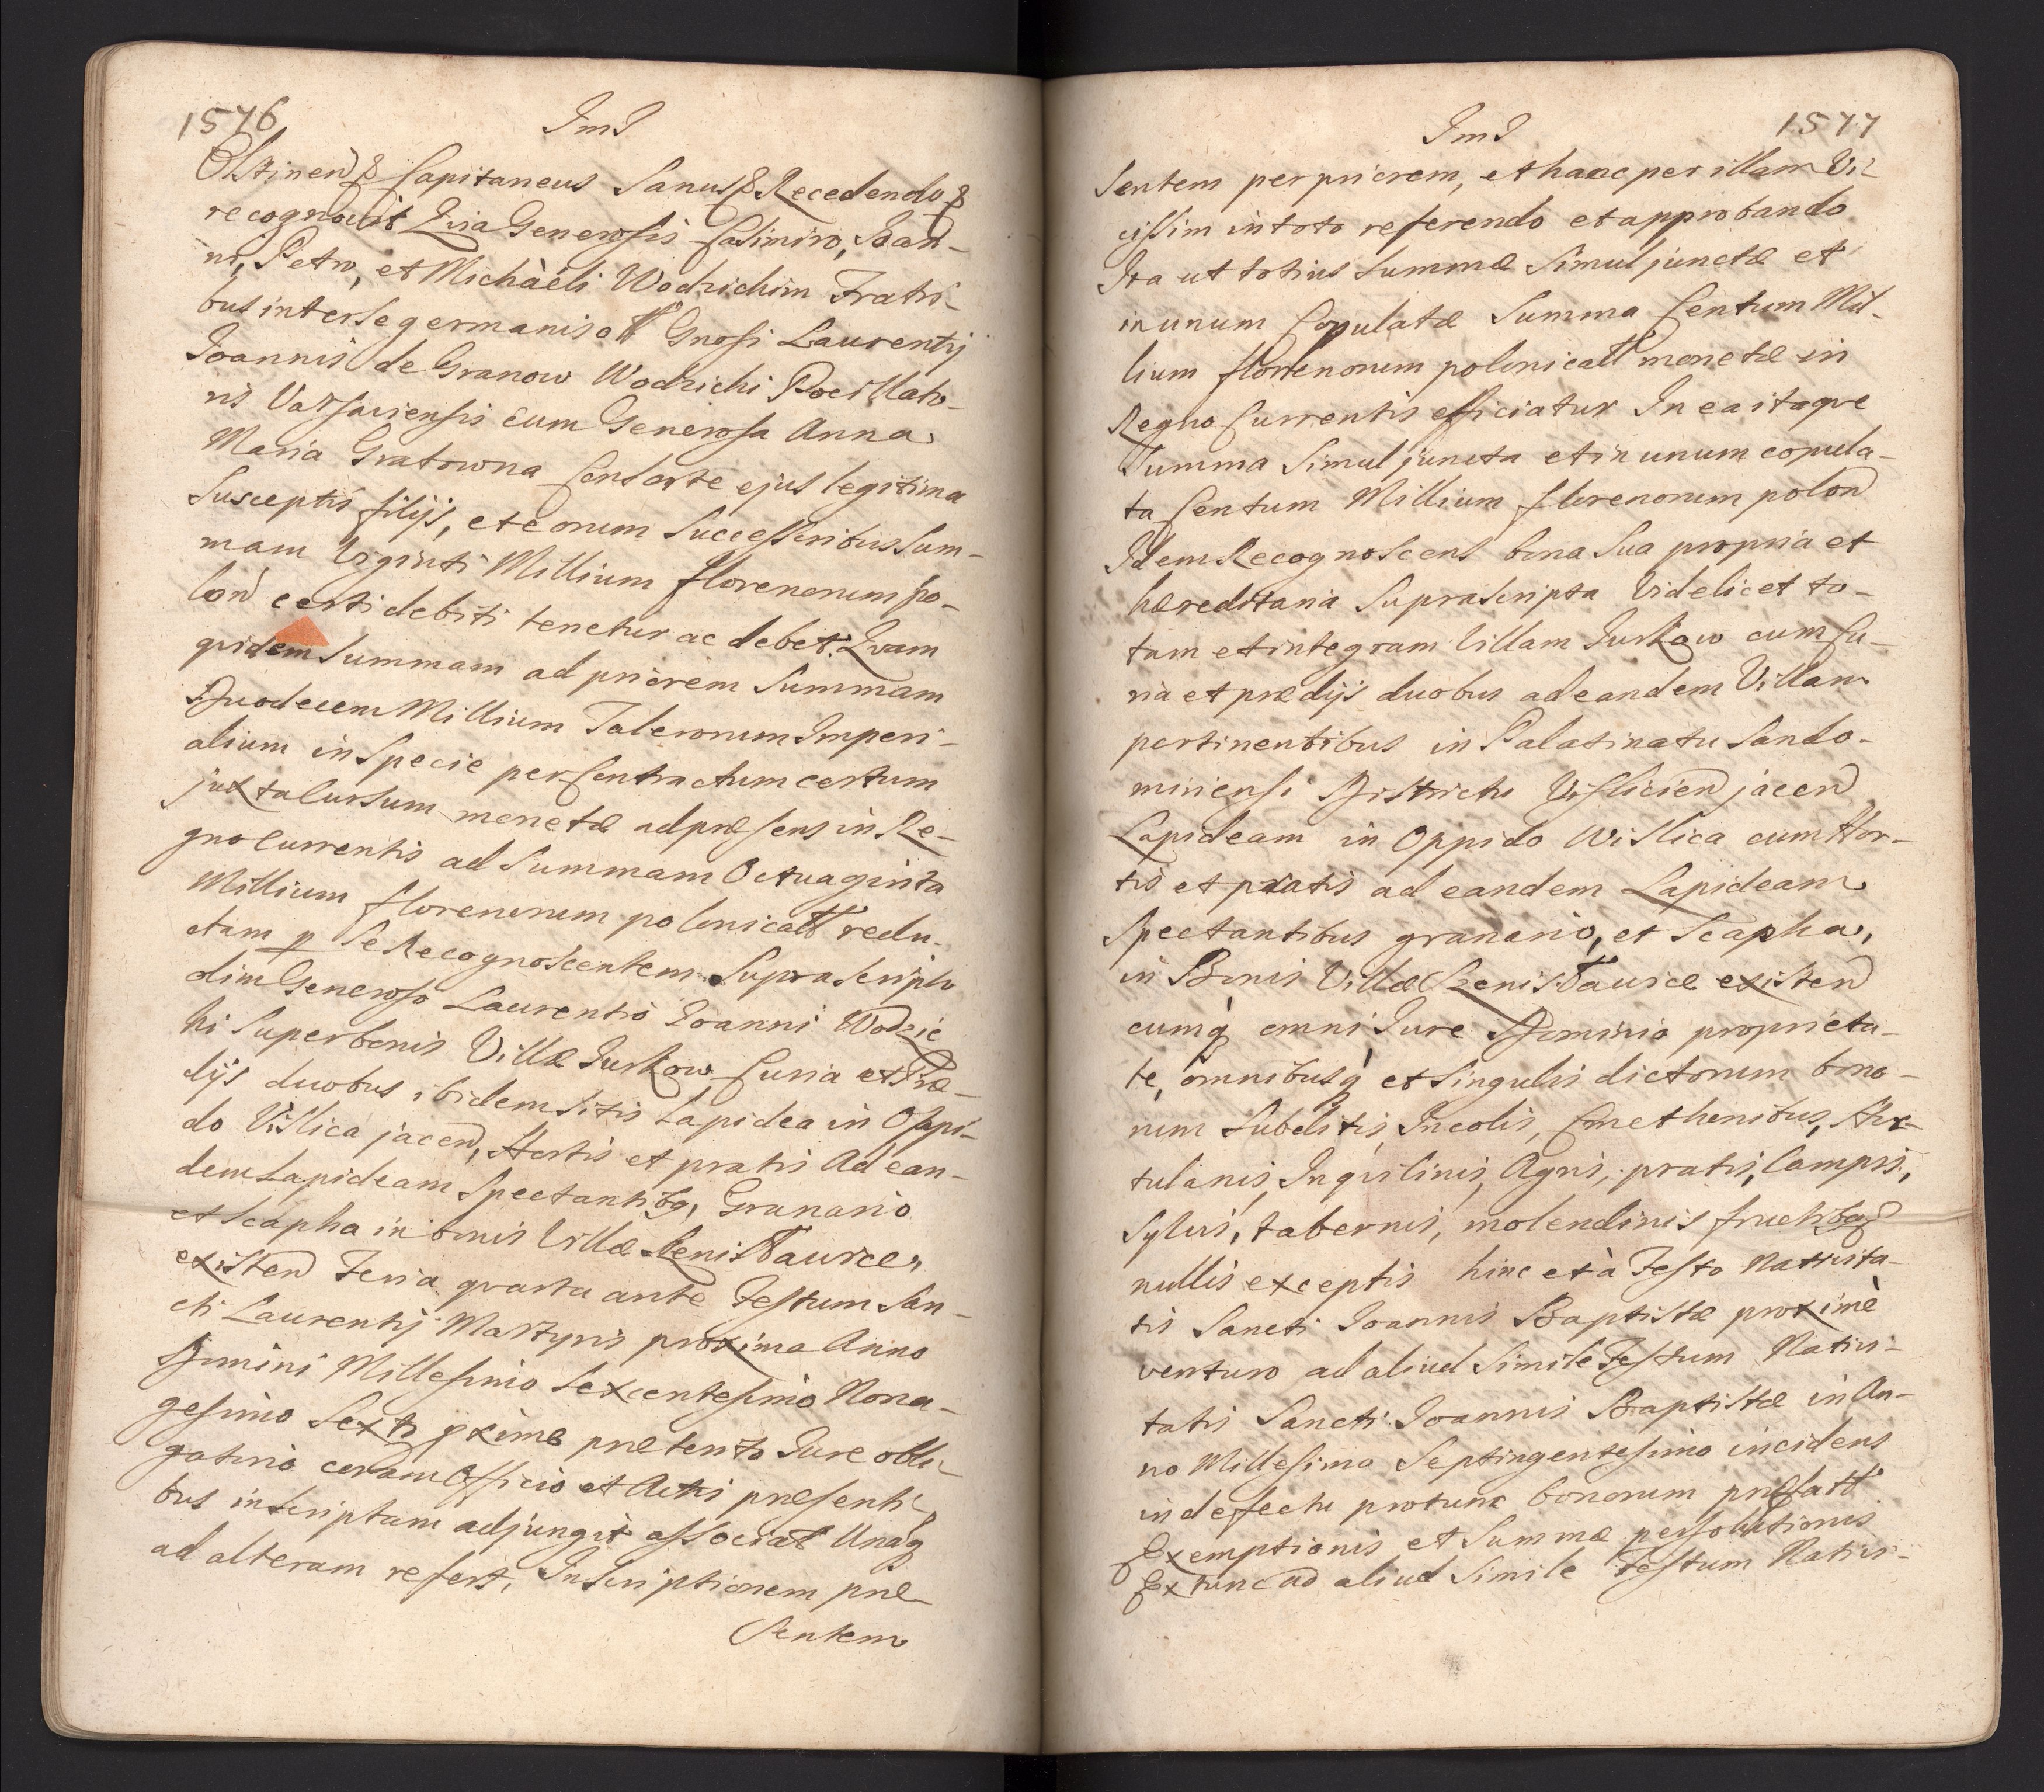 1576
JmJ
Olstinen & Capitaneus Sanus & Recedendo &
recognovit Quia Generosis Casimiro, Joan-
ni, Petro, et Michàëli Wodzickim Fratri-
bus inter se germanis ott Gnosi Laurentij
Joannis de Granow Wodzicki Pocillato-
ris Varsaviensis cum Generosa Anna
Maria Gratowna Consorte ejus legitima
Susceptis filijs, et eorum Successoribus Sum-
mam Viginti Millium florenorum po-
lon certi debiti tenetur ac debet. Quam
quidem Summam ad priorem Summam
Duodecem Millium Talerorum Imperi-
alium in Specie per Contractum certum
juxta Cursum monetæ ad præsens in Re-
gno Currentis ad Summam Octuaginta
Millium florenorum polonicatt redu-
ctam p Se Recognoscentem Supra Scripto
olim Generoso Laurentio Joanni Wodzic
ki Super bonis Villæ Jurkow Curia et Præ-
dijs duobus ibidem Sitis Lapidea in Oppi-
do Vislica jacen, Hortis et pratis Ad ean-
dem Lapideam Spectantibq, Granario
et Scapha in bonis Villæ Czenisttauice
existen Feria quarta ante Festum San-
cti Laurentij Martyris proxima Anno
Domini Millesimo Sexcentesimo Nona-
gesimo Sexto pxime prætento Jure obli-
gatorio coram Officio et Actis præsenti-
bus inscriptam adjungit associat Unaq
ad alteram refert, Inscriptionem præ-
Sentem
JmJ
1577
Sentem per priorem, et hanc per illam Vi-
cissim in toto referendo et approbando
Ita ut totius Summæ Simul junctæ et
in unum Copulatæ Summa Centum Mil-
lium florenorum polonicatt monetæ in
Regno Currentis efficiatur In ea itaque
Summa Simul juncta et in unum copula-
ta Centum Millium florenorum polon
Idem Recognoscens bona Sua propria et
hæreditaria Suprascripta Videlicet to-
tam et integram Villam Jurkow cum Cu-
ria et prædijs duobus ad eandem Villam
pertinentibus in Palatinatu Sando-
miriensi Districtu Vislicien jacen
Lapideam in Oppido Wislica cum Hor-
tis et pratis ad eandem Lapideam
Spectantibus granario, et Scapha,
in Bonis Villæ Czenisttauice existen
cumq omni Jure Dominio proprieta-
te, omnibusq et Singulis dictorum bono-
rum Subditis, Incolis, Cmethonibus, Hor-
tulanis, Inquilinis, Agris, pratis, Campis,
Sylvis, tabernis, molendinis fructibq &
nullis exceptis hinc et à Festo Nativita-
tis Sancti Joannis Baptistæ proximè
venturo ad aliud Simile Festum Nativi-
tatis Sancti Joannis Baptistæ in An-
no Millesimo Septingentesimo incidens
in defectu protunc bonorum præfatt
Exemptionis et Summæ persolutionis
Extunc ad aliud Simile Festum Nativi-